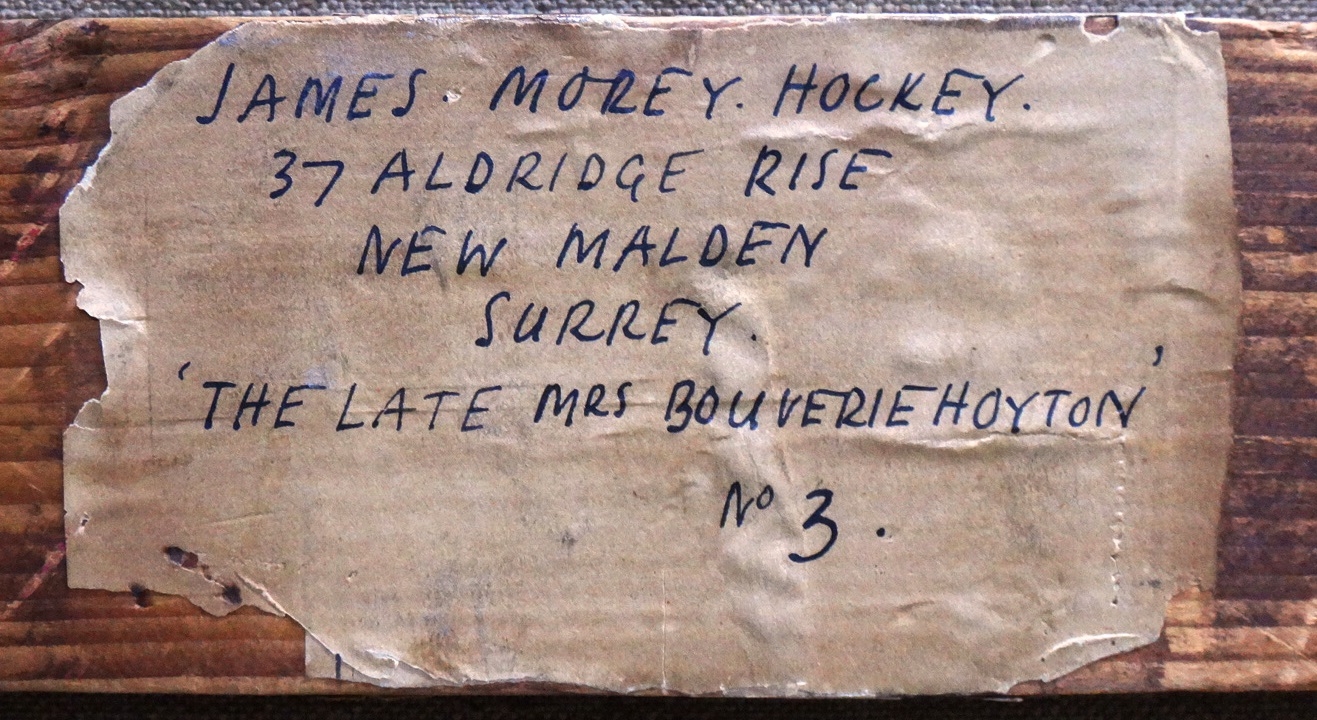 JAMES. MOREY. HOCKEY.
37 ALDRIDGE RISE
NEW MALDEN
SURREY.
'THE LATE MRS BOUVERIE HOYTON'
No 3.